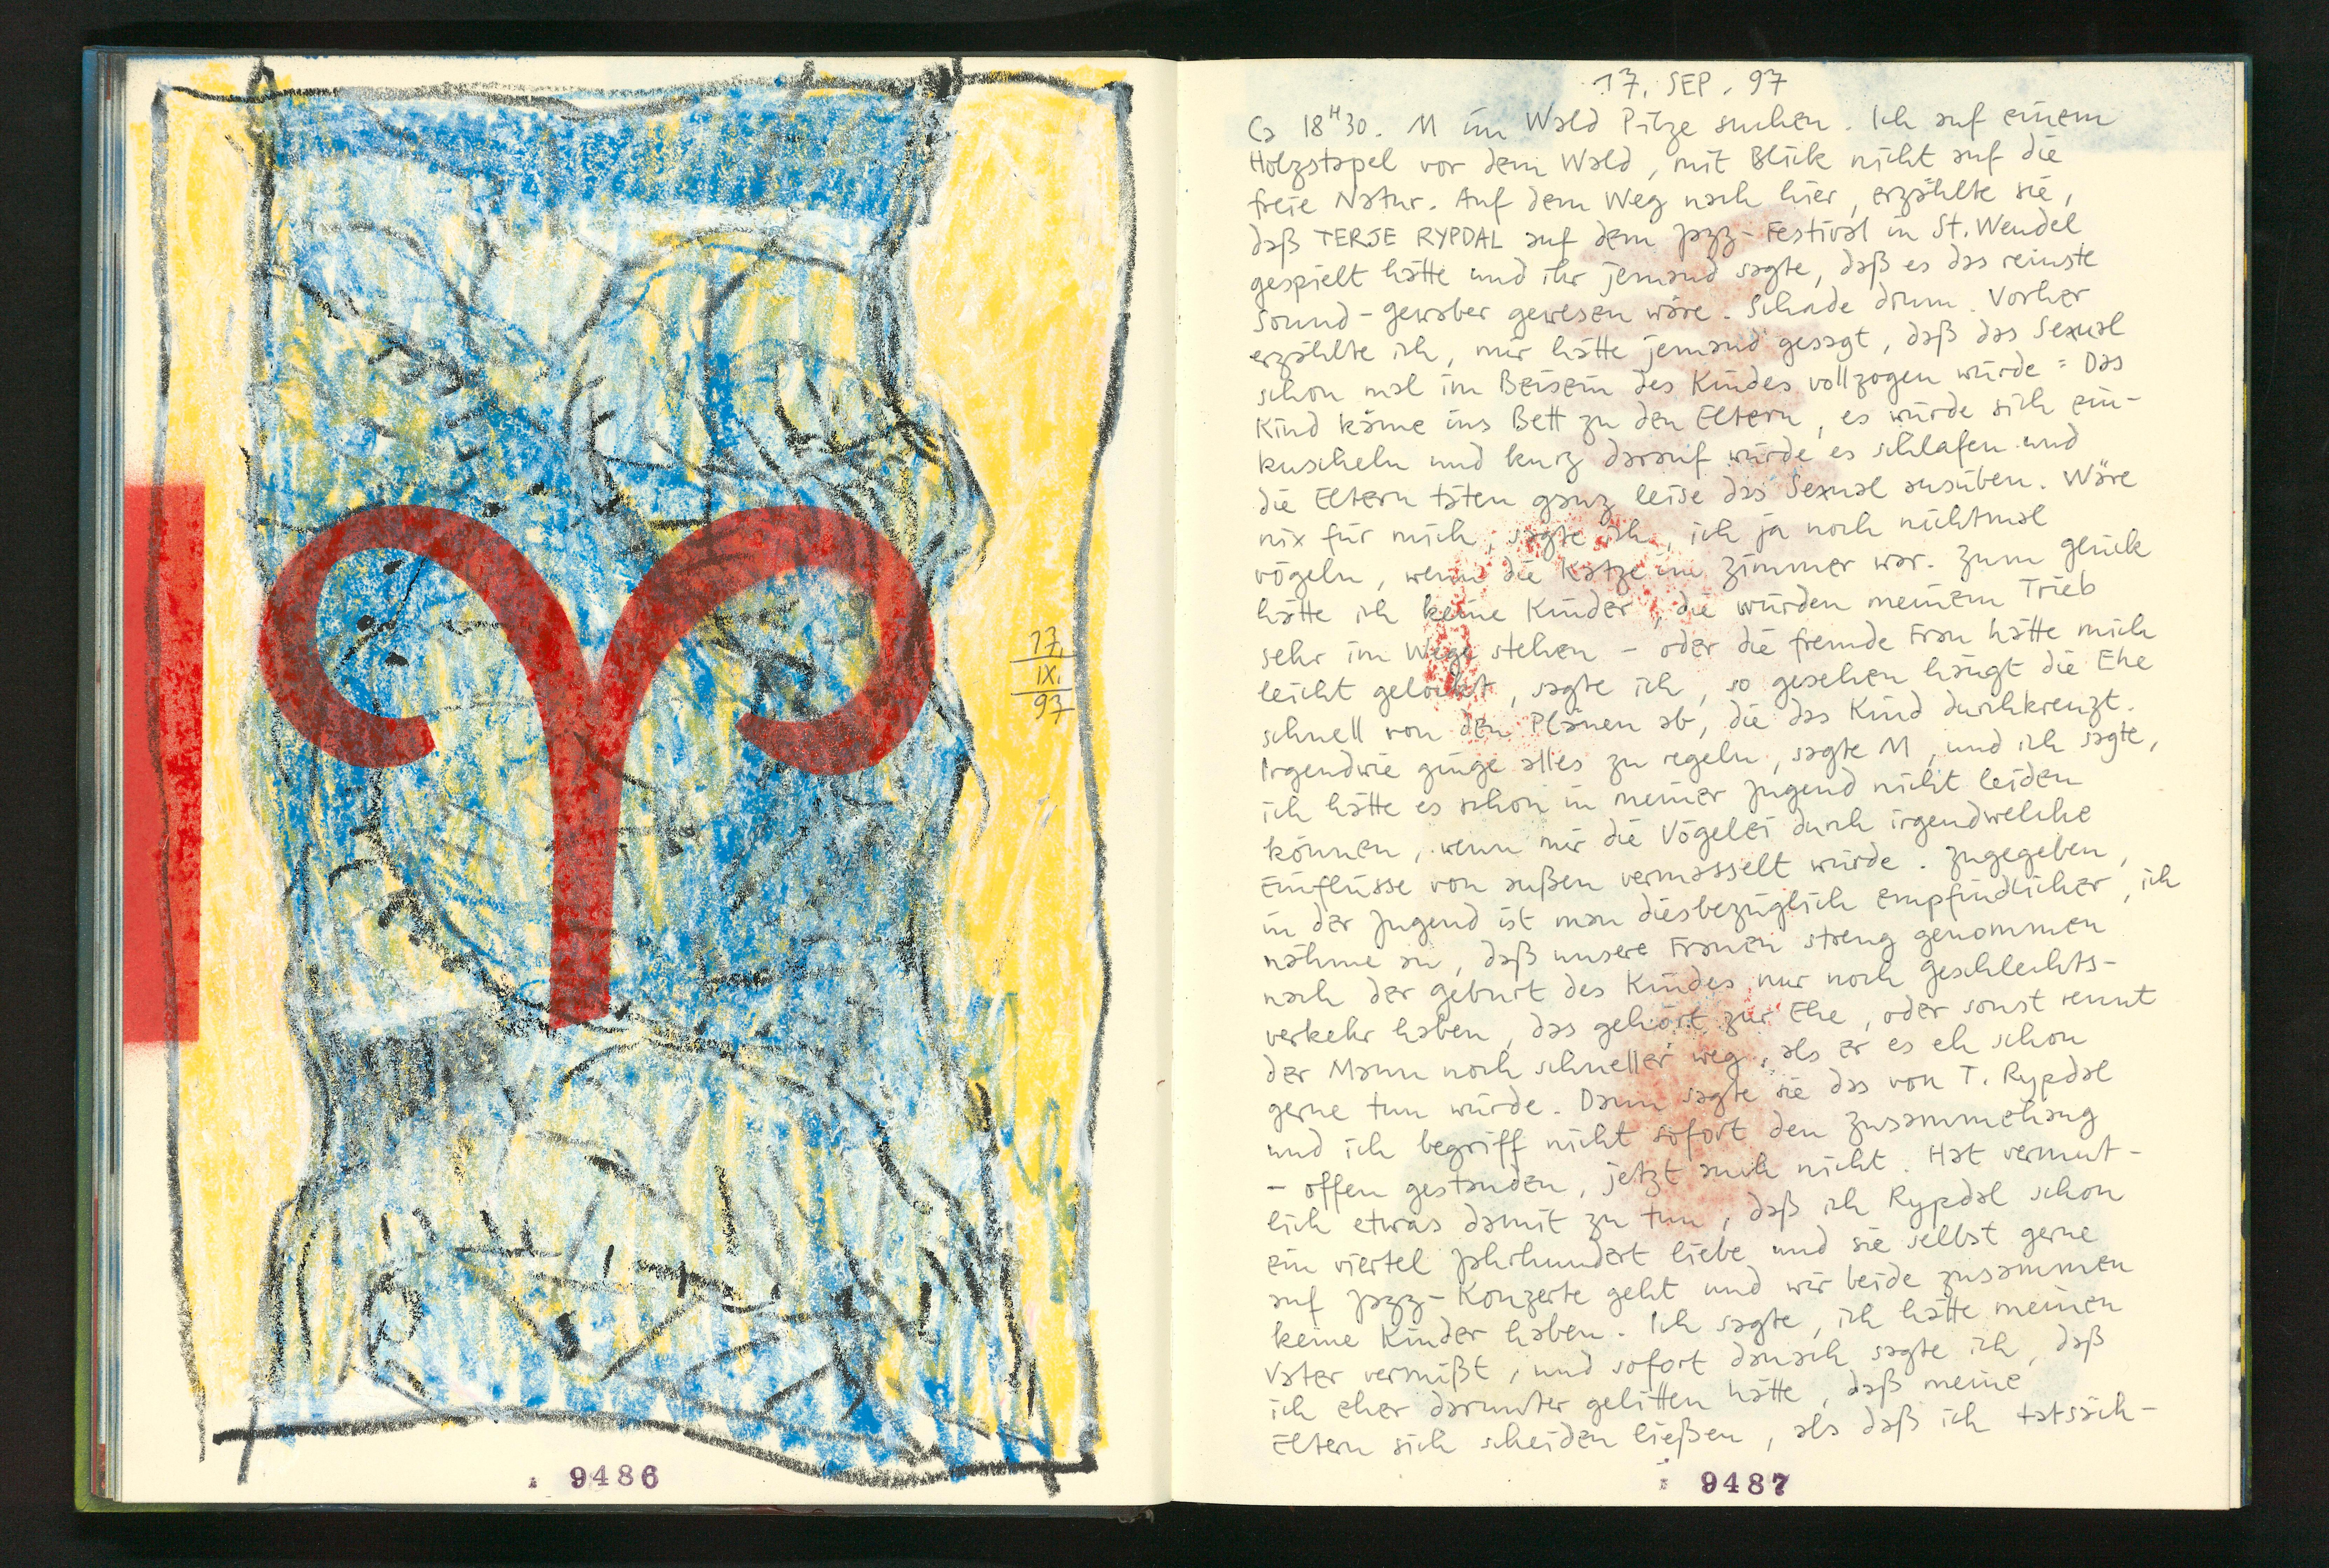 17.
IX.
97
9486
17. SEP. 97
Ca 18H30. M im Wald Pilze suchen. Ich auf einem
Holzstapel vor dem Wald, mit Blick nicht auf die
freie Natur. Auf dem Weg nach hier, erzählte sie,
daß TERJE RYPDAL auf dem Jazz-Festival in St. Wendel
gespielt hätte und ihr jemand sagte, daß es das reinste
Sound-gewaber gewesen wäre. Schade drum. Vorher
erzählte ich, mir hätte jemand gesagt, daß das Sexual
schon mal im Beisein des Kindes vollzogen würde: Das
Kind käme ins Bett zu den Eltern, es würde sich ein-
kuscheln und kurz darauf würde es schlafen und
die Eltern täten ganz leise das Sexual ausüben. Wäre
nix für mich, sagte ich, ich ja noch nichtmal
vögeln, wenn die Katze im Zimmer war. Zum Glück
hätte ich keine Kinder, die würden meinem Trieb
sehr im Wege stehen - oder die fremde Frau hätte mich
leicht gelockt, sagte ich, so gesehen hängt die Ehe
schnell von den Plänen ab, die das Kind durchkreuzt.
Irgendwie ginge alles zu regeln, sagte M, und ich sagte,
ich hätte es schon in meiner Jugend nicht leiden
können, wenn mir die Vögelei durch irgendwelche
Einflüsse von außen vermasselt würde. Zugegeben,
in der Jugend ist man diesbezüglich empfindlicher, ich
nähme an, daß unsere Frauen streng genommen
nach der Geburt des Kindes nur noch Geschlechts-
verkehr haben, das gehört zur Ehe, oder sonst rennt
der Mann noch schneller weg, als er es eh schon
gerne tun würde. Dann sagte sie das von T. Rypdal
und ich begriff nicht sofort den Zusammehang
- offen gestanden, jetzt auch nicht. Hat vermut-
lich etwas damit zu tun, daß ich Rypdal schon
ein viertel Jahrhundert liebe und sie selbst gerne
auf Jazz-Konzerte geht und wir beide zusammen
keine Kinder haben. Ich sagte, ich hätte meinen
Vater vermißt, und sofort danach sagte ich, daß
ich eher darunter gelitten hätte, daß meine
Eltern sich scheiden ließen, als daß ich tatsäch-
9487